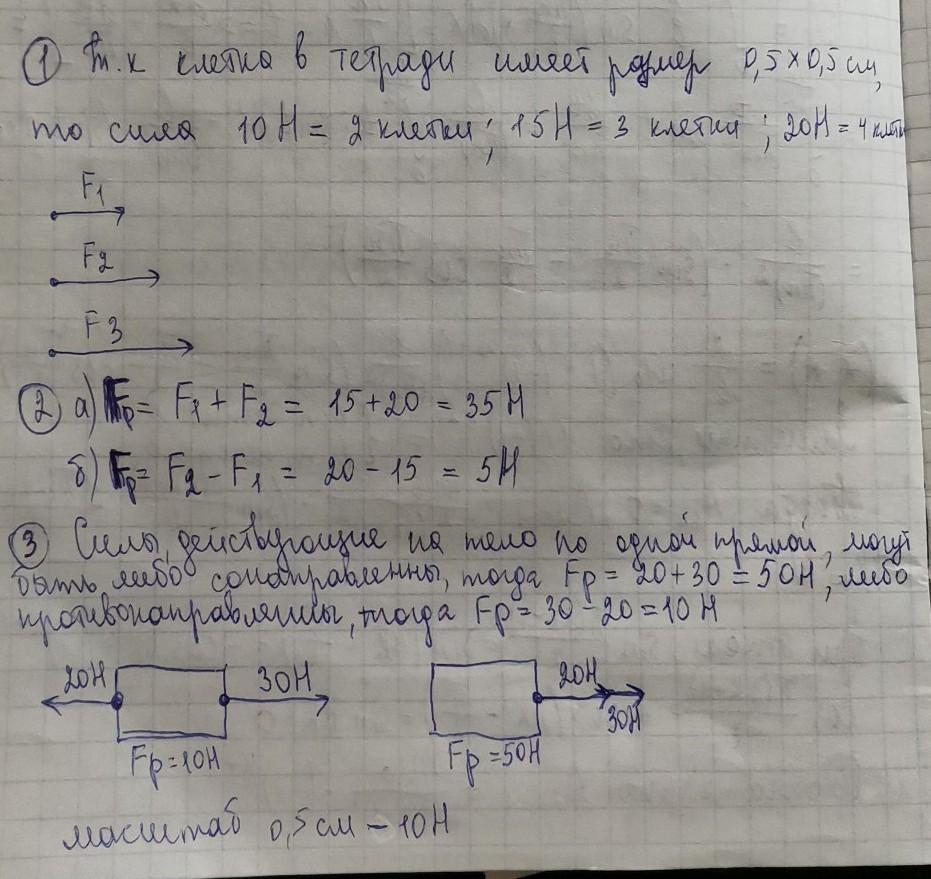 ① т.к клетка в тетради имеет размер 0,5×0,5 см,
то сила 10 Н = 2 клетки; 15Н = 3 клетки; 20Н = 4 клетки
F1
F2
F3
② а) Fр = F1 + F2 = 15+20 = 35 Н
б) Fр = F2 - F1 = 20 - 15 = 5Н
③ Силы, действующие на тело по одной прямой, могут
быть либо сонаправленны, тогда Fр = 20+30 = 50Н, либо
противонаправленны, тогда Fр = 30 - 20 = 10 Н
20Н 30Н 20Н
30Н
Fр=10Н Fр=50Н
масштаб 0,5 см - 10Н